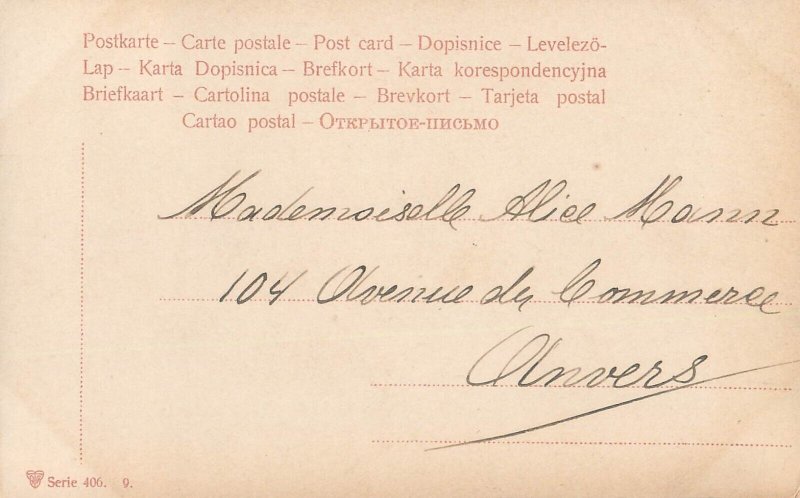 Postkarte – Carte postale – Post card – Dopisnice – Levelező-
Lap – Karta Dopisnica – Brefkort – Karta korespondencyjna
Briefkaart – Cartolina postale – Brevkort – Tarjeta postal
Cartao postal – Открытое-письмо
Mademoiselle Alice Mann
104 Avenue du Commerce
Anvers
Serie 406. 9.